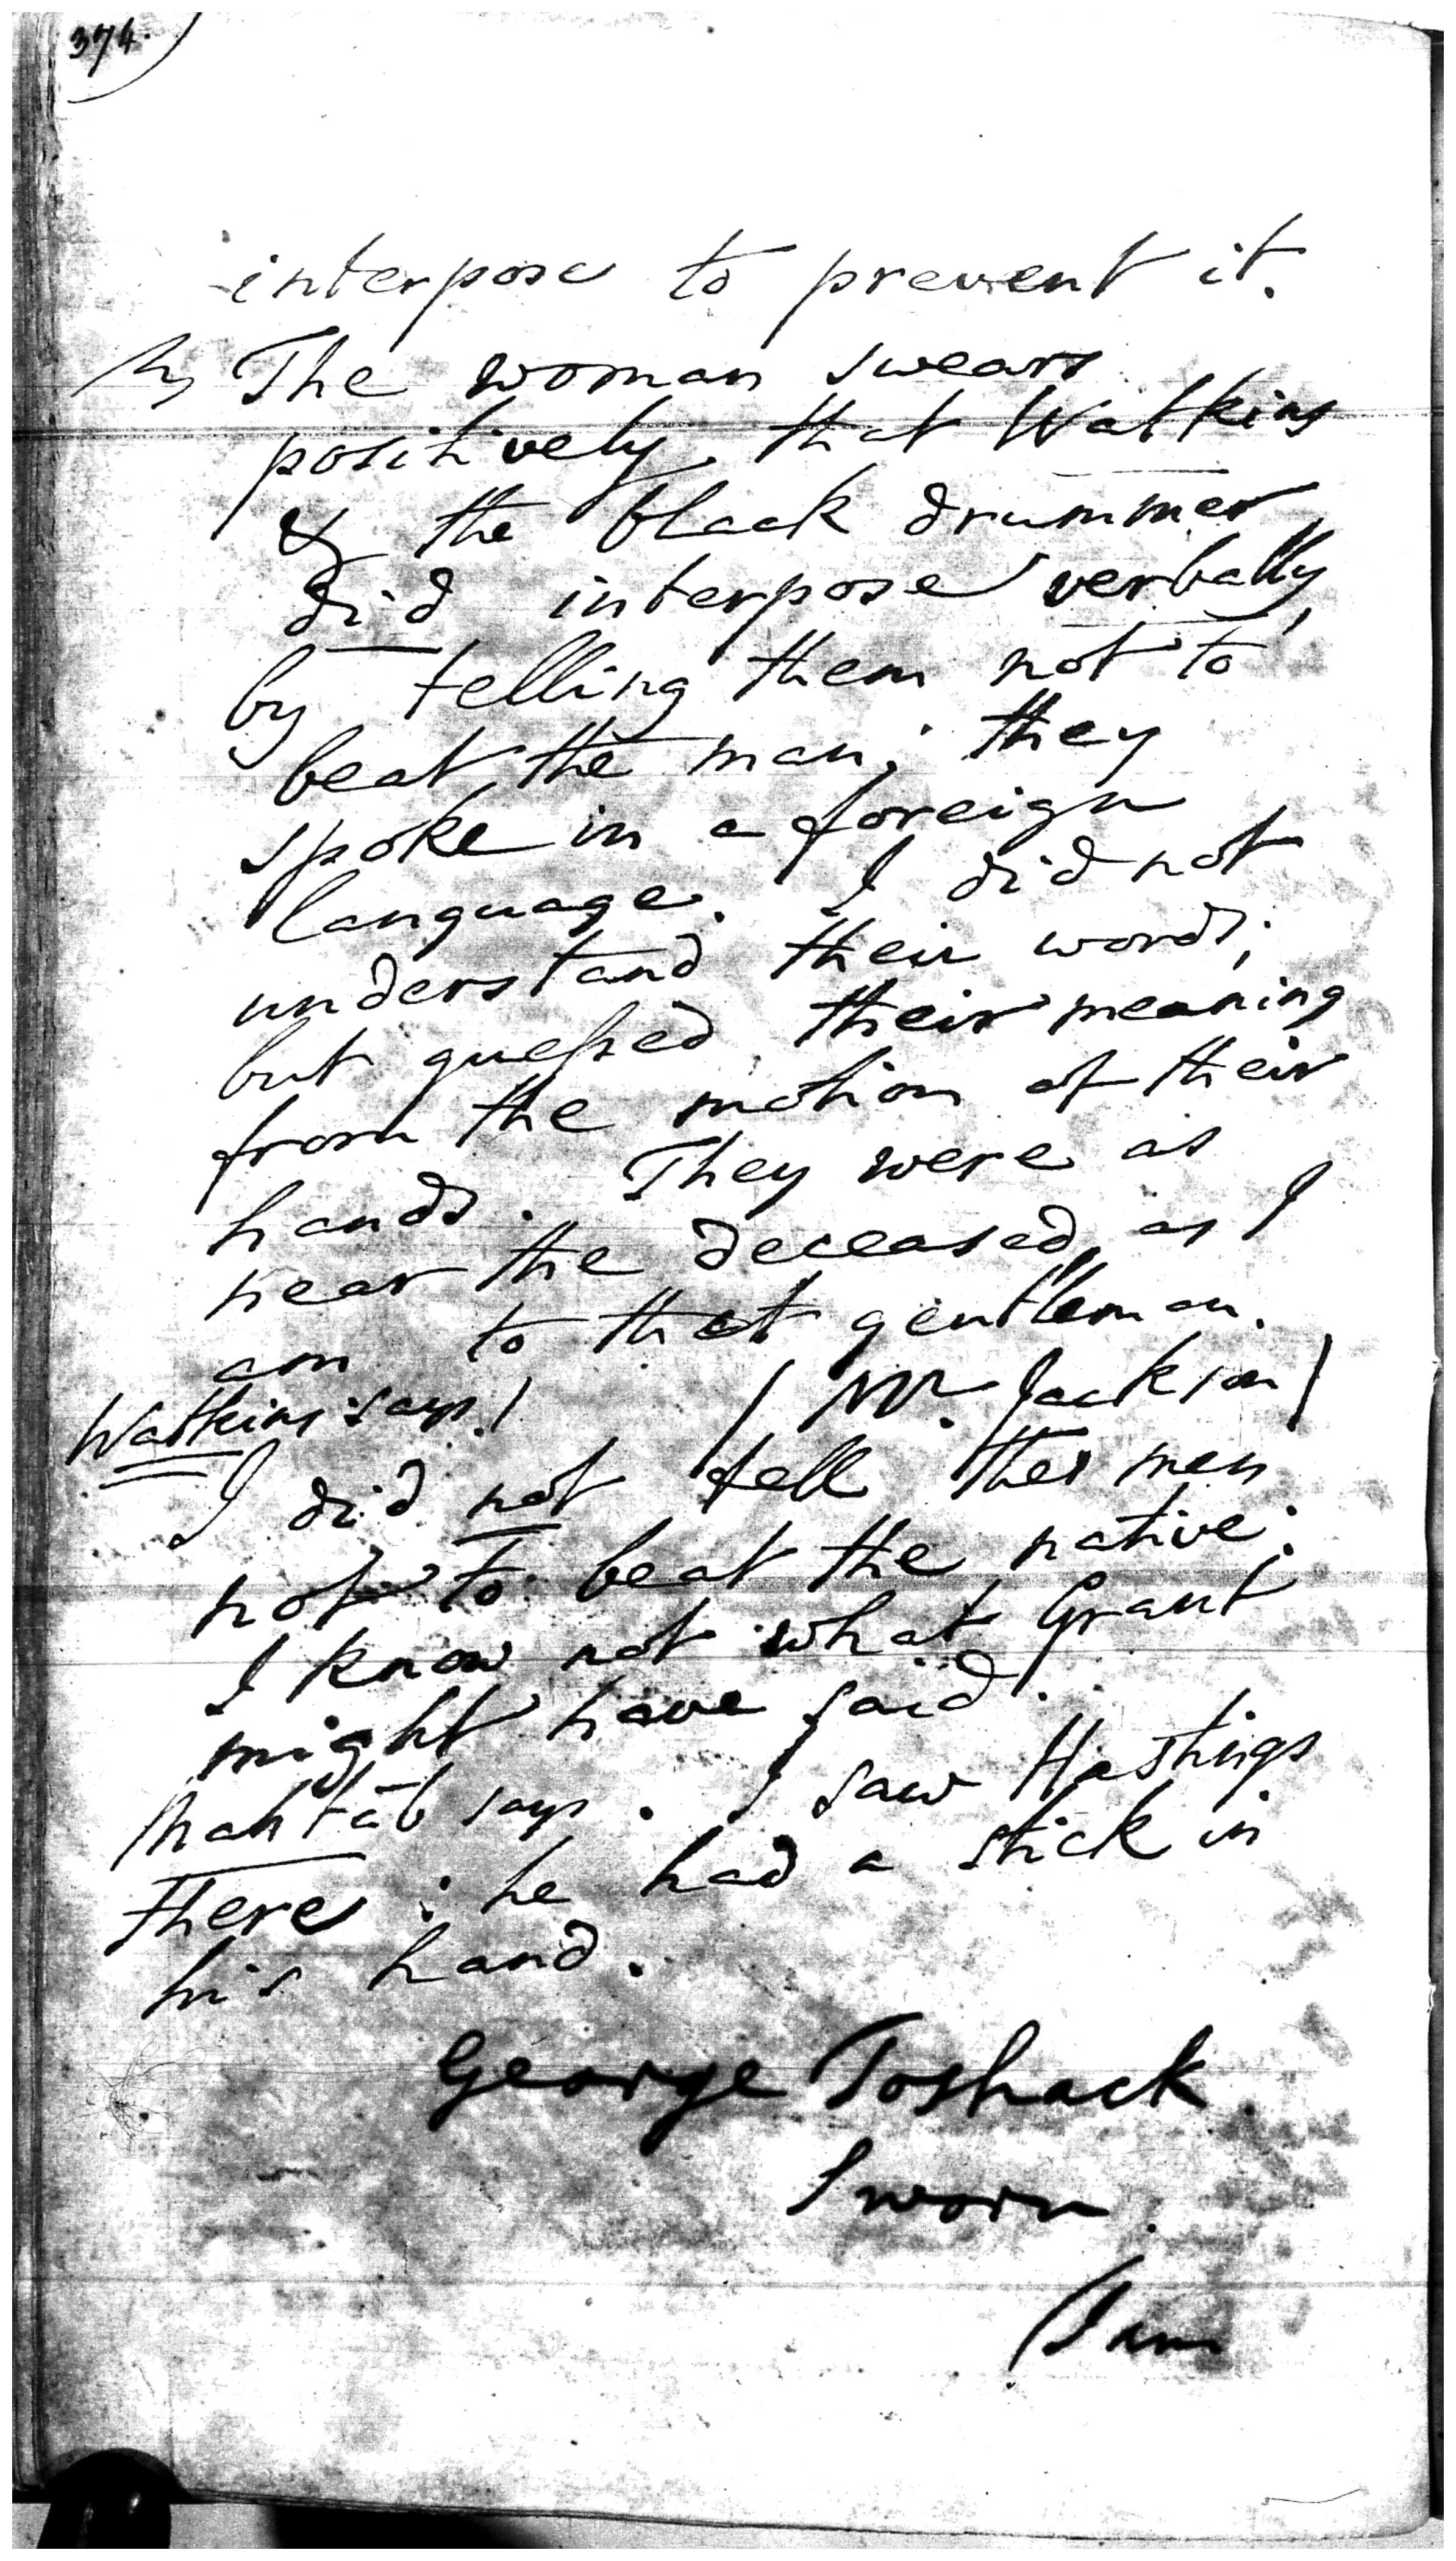 374.
interpose to prevent it.
The woman swears
positively, that Watkins
& the black drummer
did interpose verbally,
by telling them not to
beat the man; they
spoke in a foreign
language. I did not
understand their words;
but guessed their meaning
from the motion of their
hands. They were as
near the deceased, as I
am to that gentleman.
Watkins says / / Mr. Jackson /
I did not tell the men
not to beat the native;
I know not what Grant
might have said.
Mahtāb says. I saw Hastings
there; he had a stick in
his hand.
George Toshack
Sworn.
I am